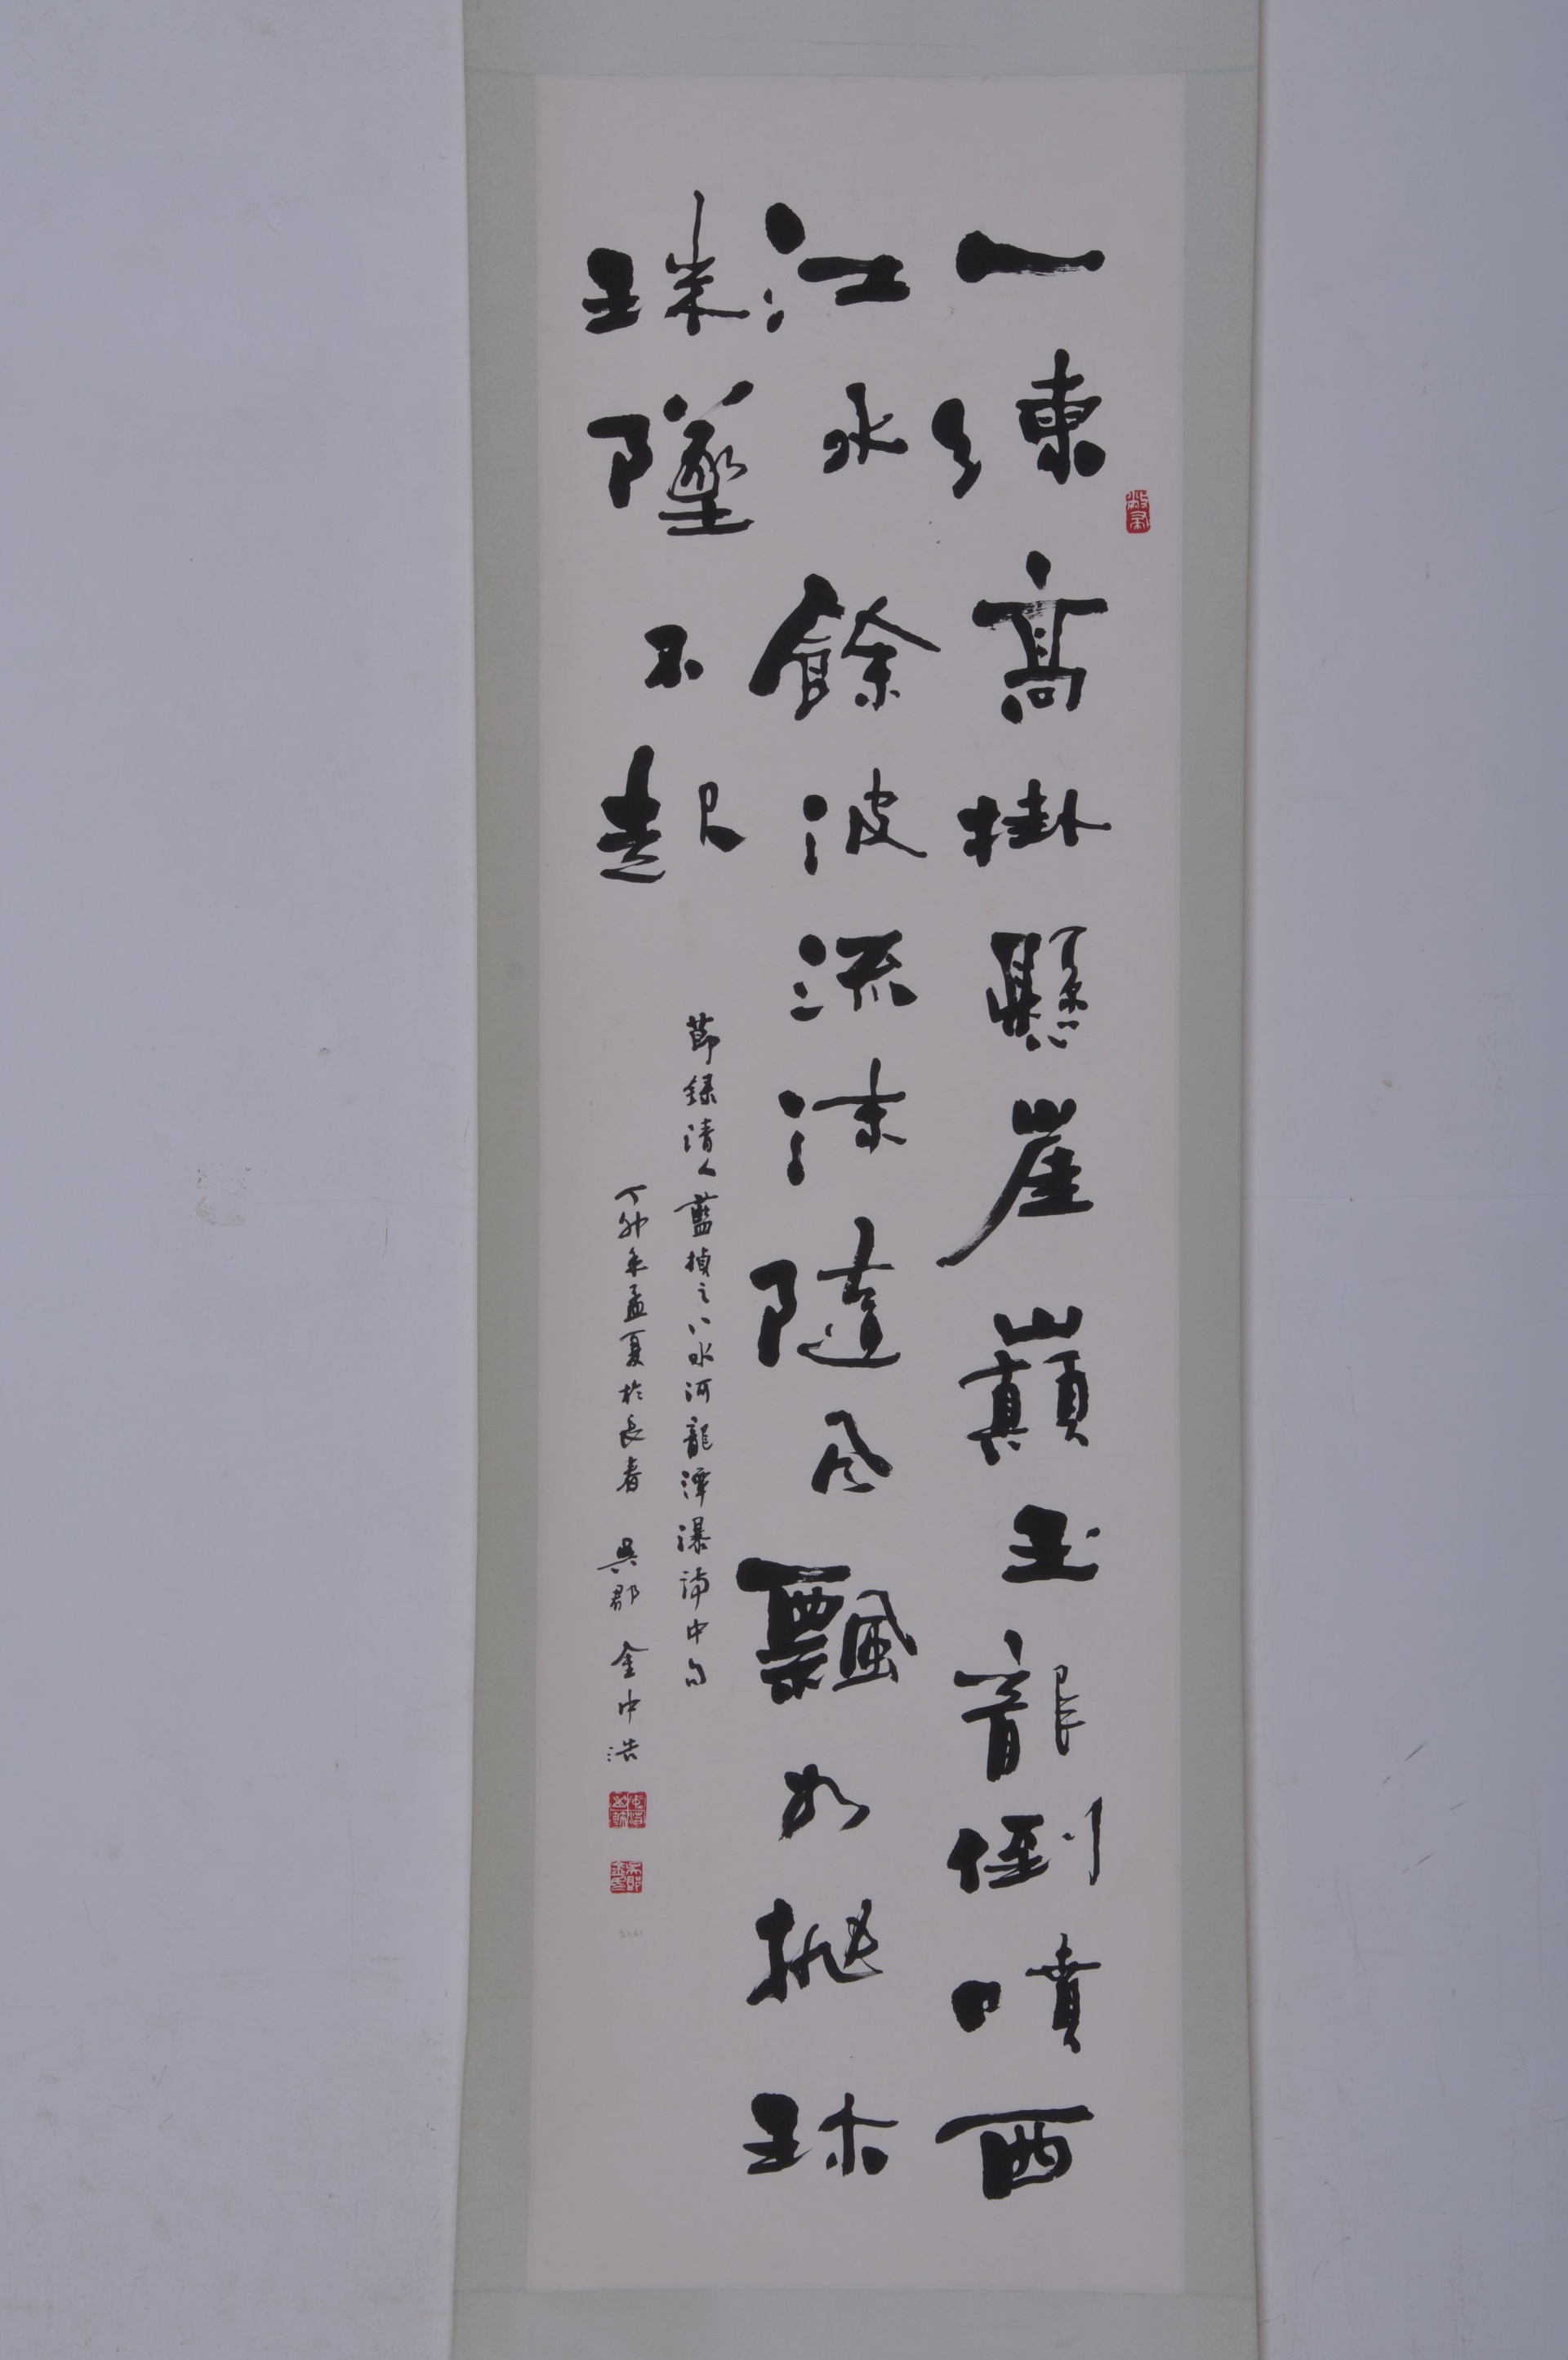 一練高掛懸崖巔玉龍倒噴西
江水餘波流沫隨風飄如拋珠
珠墜不起
節錄清人藍楨之以水河龍潭瀑詩中句
丁卯年孟夏於長春 吳郡 金中浩